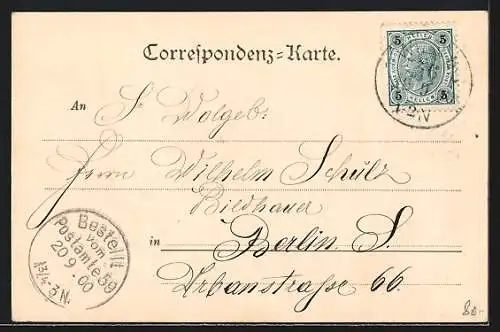 Correspondenz=Karte.
5 HELLER 5
5 5
1-2N
An S. Wolgeb.
Herrn Wilhelm Schulz
Bildhauer
in Berlin. S.
Urbanstrasse 66.
Bestellt
vom
Postamte 59
20 9.00
1¾-3N.
80.-